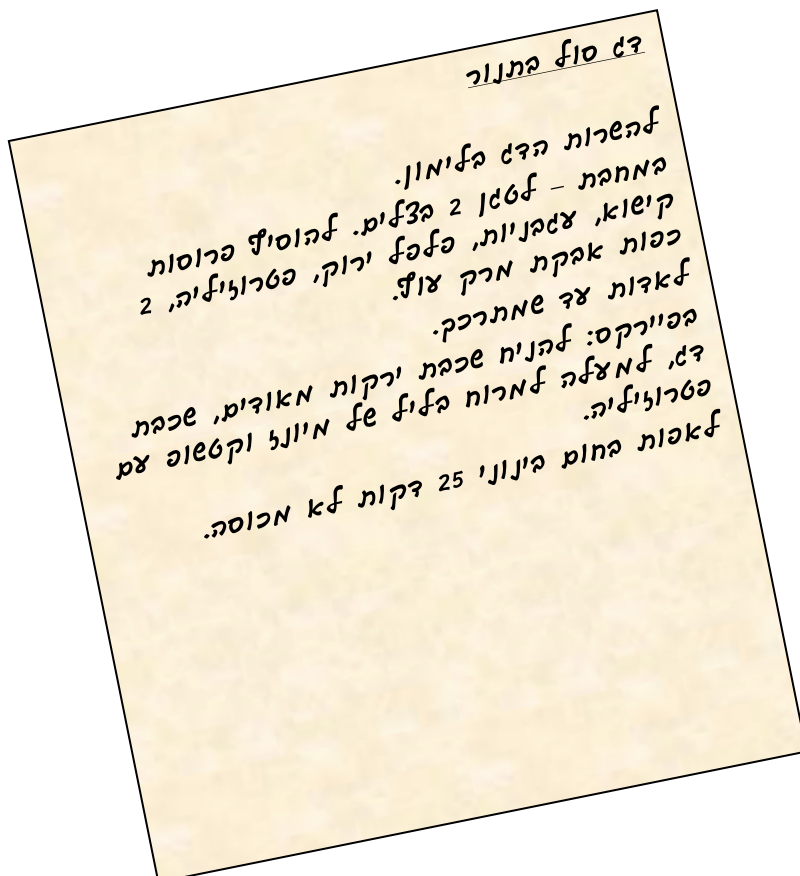 דג סול בתנור
להשרות הדג בלימון.
במחבת – לטגן 2 בצלים. להוסיף פרוסות
קישוא, עגבניות, פלפל ירוק, פטרוזיליה, 2
כפות אבקת מרק עוף.
לאדות עד שמתרכך.
בפיירקס: להניח שכבת ירקות מאודים, שכבת
דג, למעלה למרוח בליל של מיונז וקטשופ עם
פטרוזיליה.
לאפות בחום בינוני 25 דקות לא מכוסה.